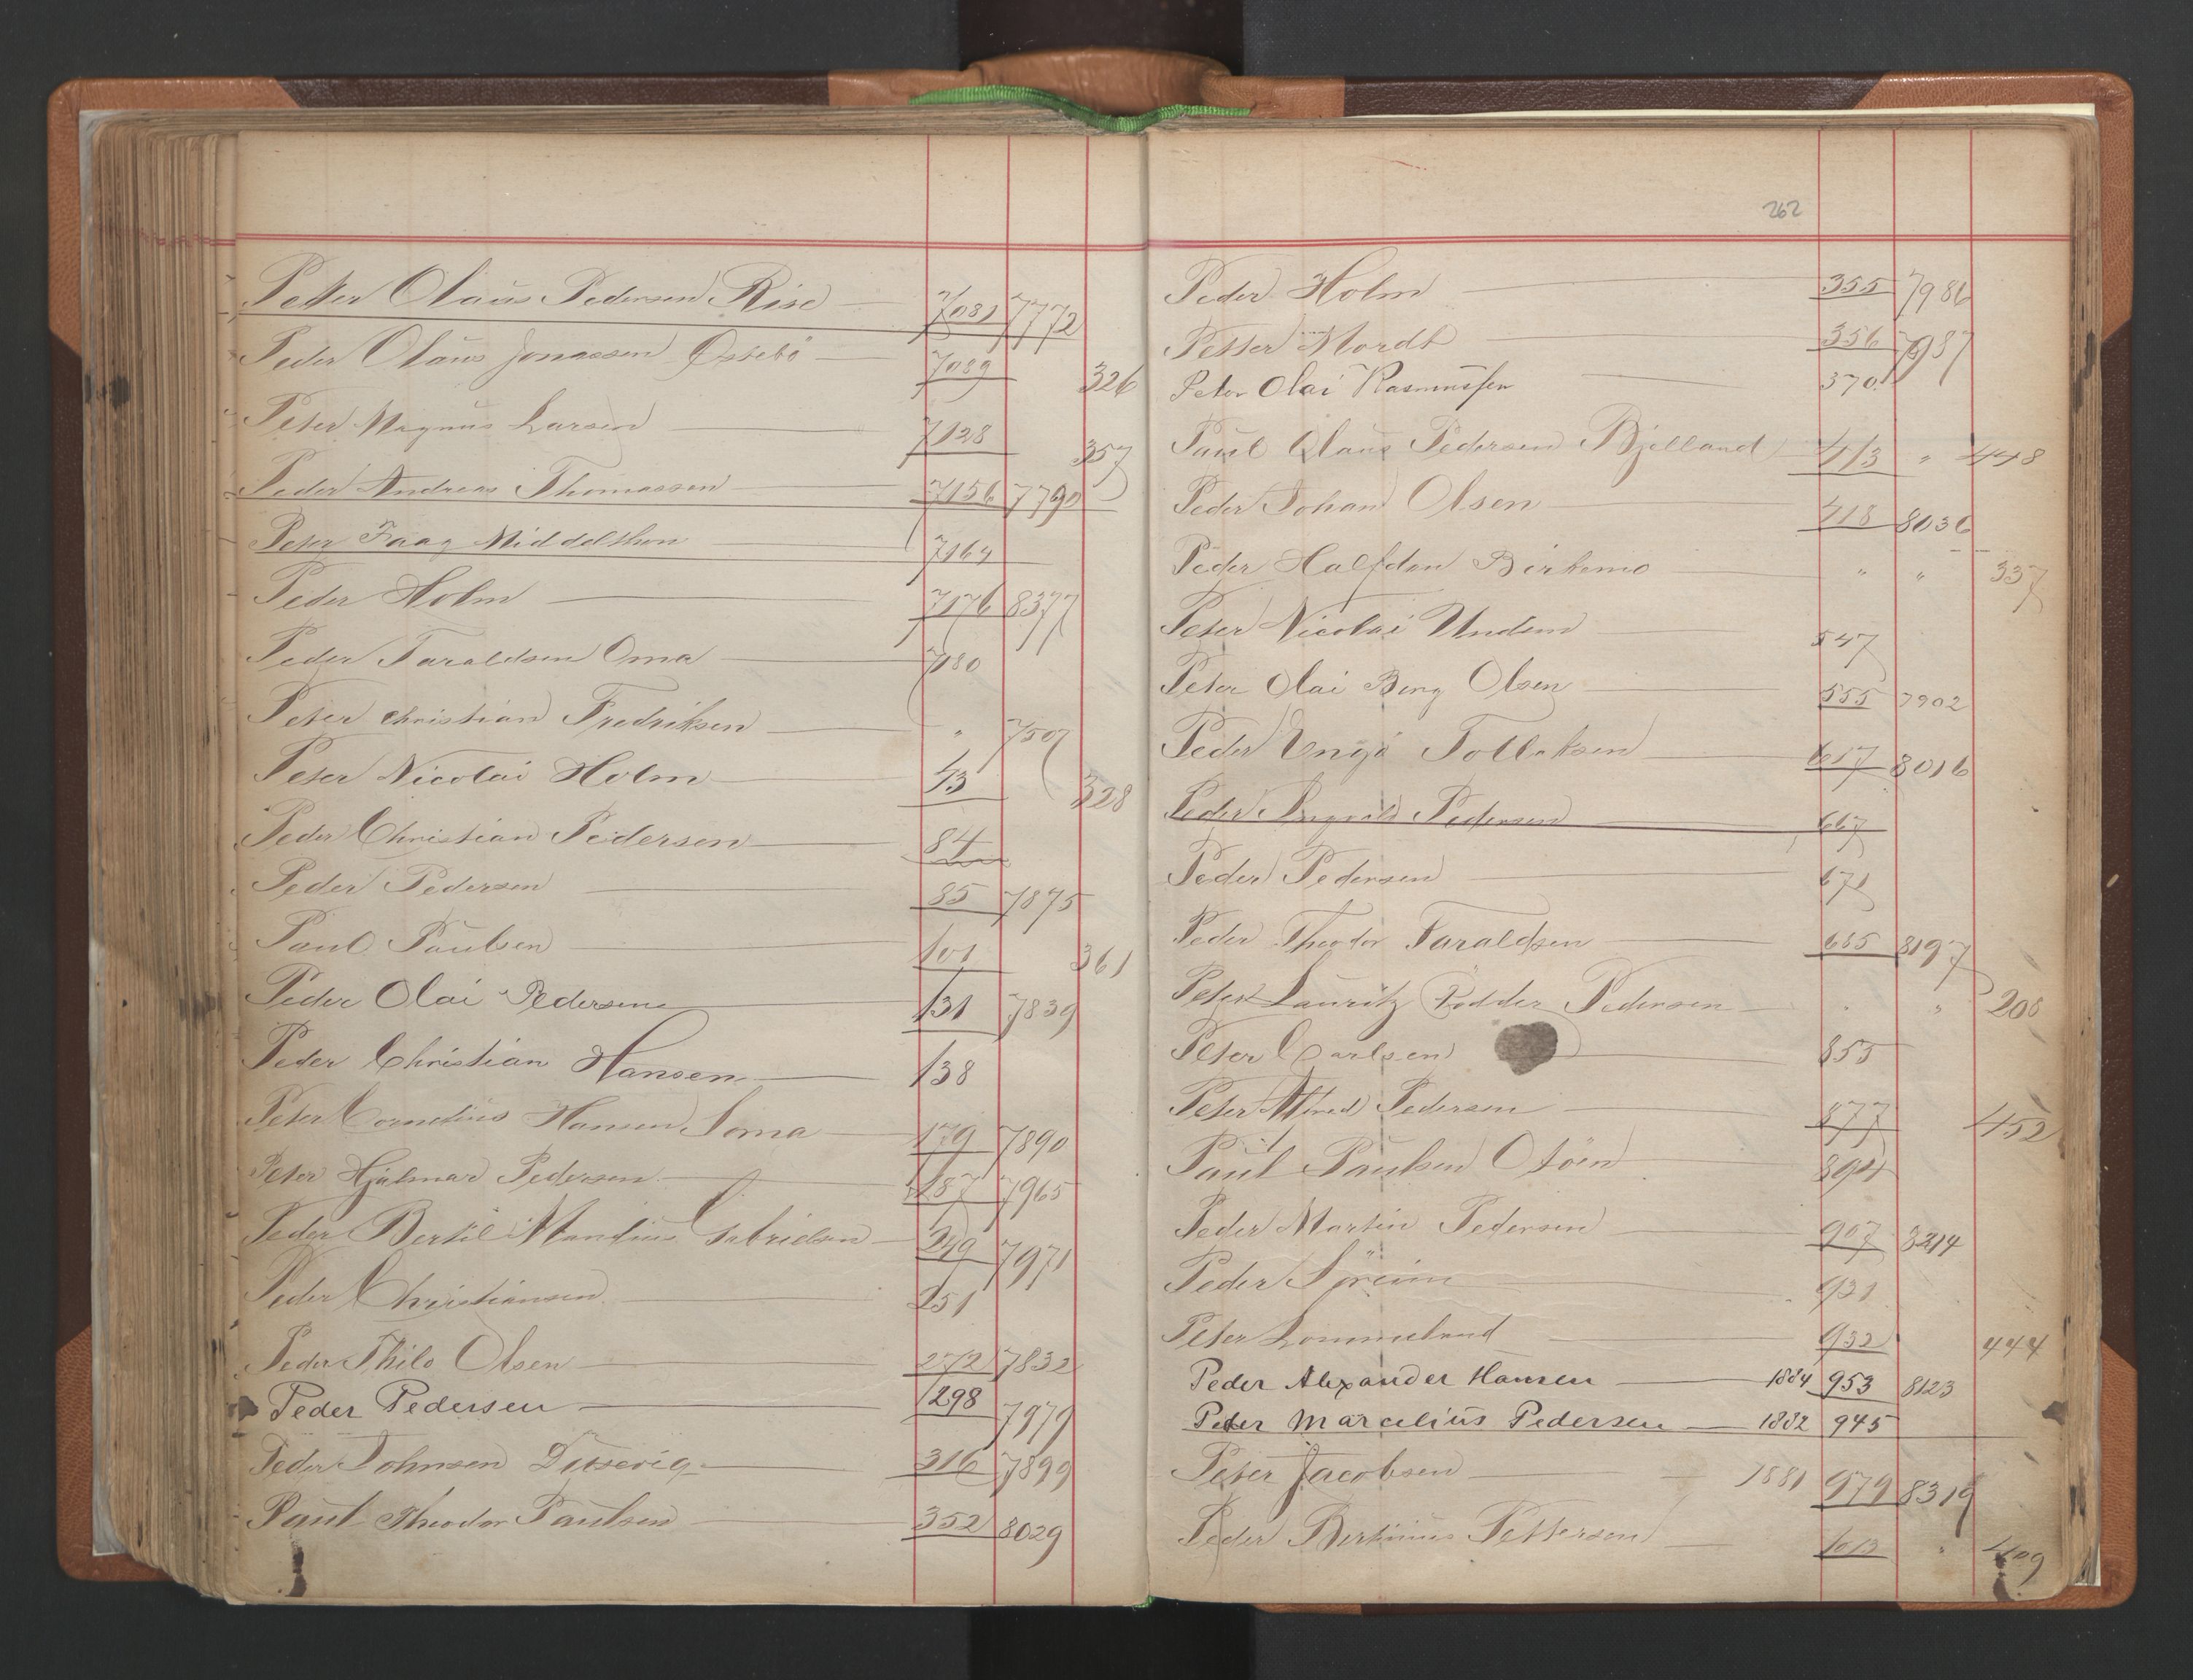 Petter Olaus Pedersen Rise 7081 7772
Peder Olaus Jonassen Østebö 7089 326
Peter Magnus Larsen 7128 357
Peder Andreas Thomassen 7156 7790
Peter Faag Middelthon 7164
Peder Holm 7176 8377
Peder Taraldsen Oma 7180
Peter Christian Fredriksen " 7507
Peter Nicolai Holm 13 328
Peder Christian Pedersen 84
Peder Pedersen 85 7875
Paul Paulsen 101 361
Peder Olai Pedersen 131 7839
Peder Christian Hansen 138
Peter Cornelius Hansen Soma 179 7890
Peter Hjalmar Pedersen 187 7965
Peder Bertil Mandius Gabrielsen 249 7971
Peder Christiansen 251
Peder Thilo Olsen 272 7832
Peder Pedersen 298 7979
Peder Johnsen 316 7899
Paul Theodor Paulsen 352 8029
262
Peder Holm 355 7986
Petter Mordt 356 7987
Peter Olai Rasmussen 370
Paul Olaus Pedersen Bjelland 413 " 448
Peder Johan Olsen 418 8036
Peder Halfdan Birkemo " " 337
Peter Nicolai Undem 547
Peter Olai Berg Olsen 555 7902
Peder Unga Tollaksen 617 8016
Peder Ingvald Pedersen 667
Peder Pedersen 671
Peder Theodor Taraldsen 685 8197
Peter Lauritz Rödder Pedersen " " 208
Peter Carlsen 855
Peter Alfred Pedersen 877 452
Paul Paulsen Otöen 894
Peder Martin Pedersen 907 8214
Peder Söreim 931
Peter Lommeland 932 444
Peder Alexander Hansen 1884 953 8123
Peter Marcelius Pedersen 1882 945
Peter Jacobsen 1881 979 8319
Peder Bertinius Pettersen 1012 " 409